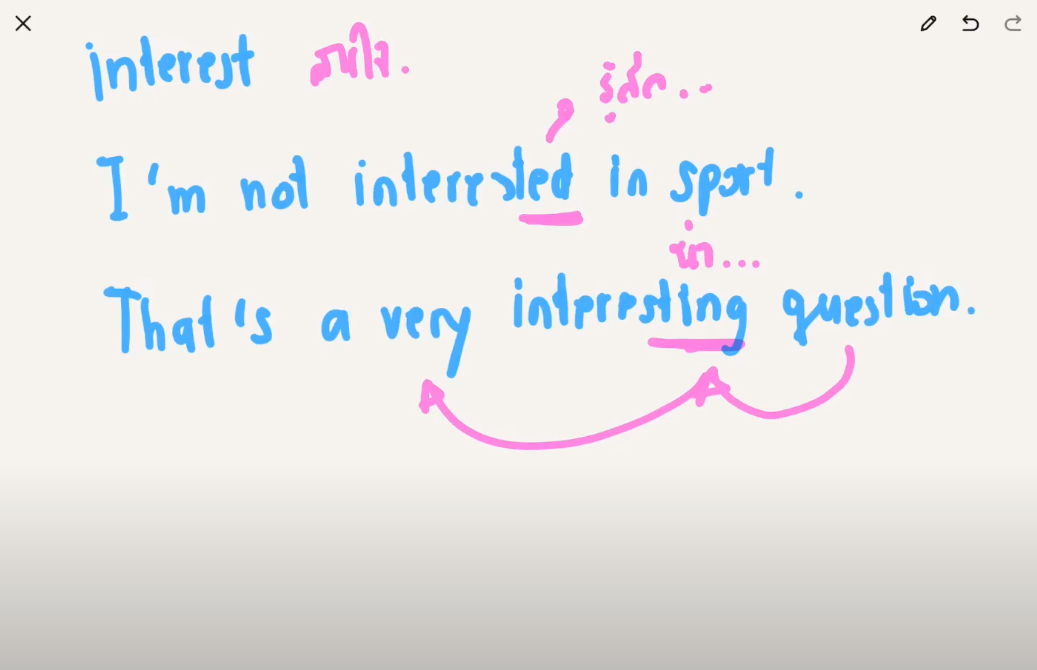 interest
รู้สึก...
I'm not interested in sport.
น่า...
That's a very interesting question.